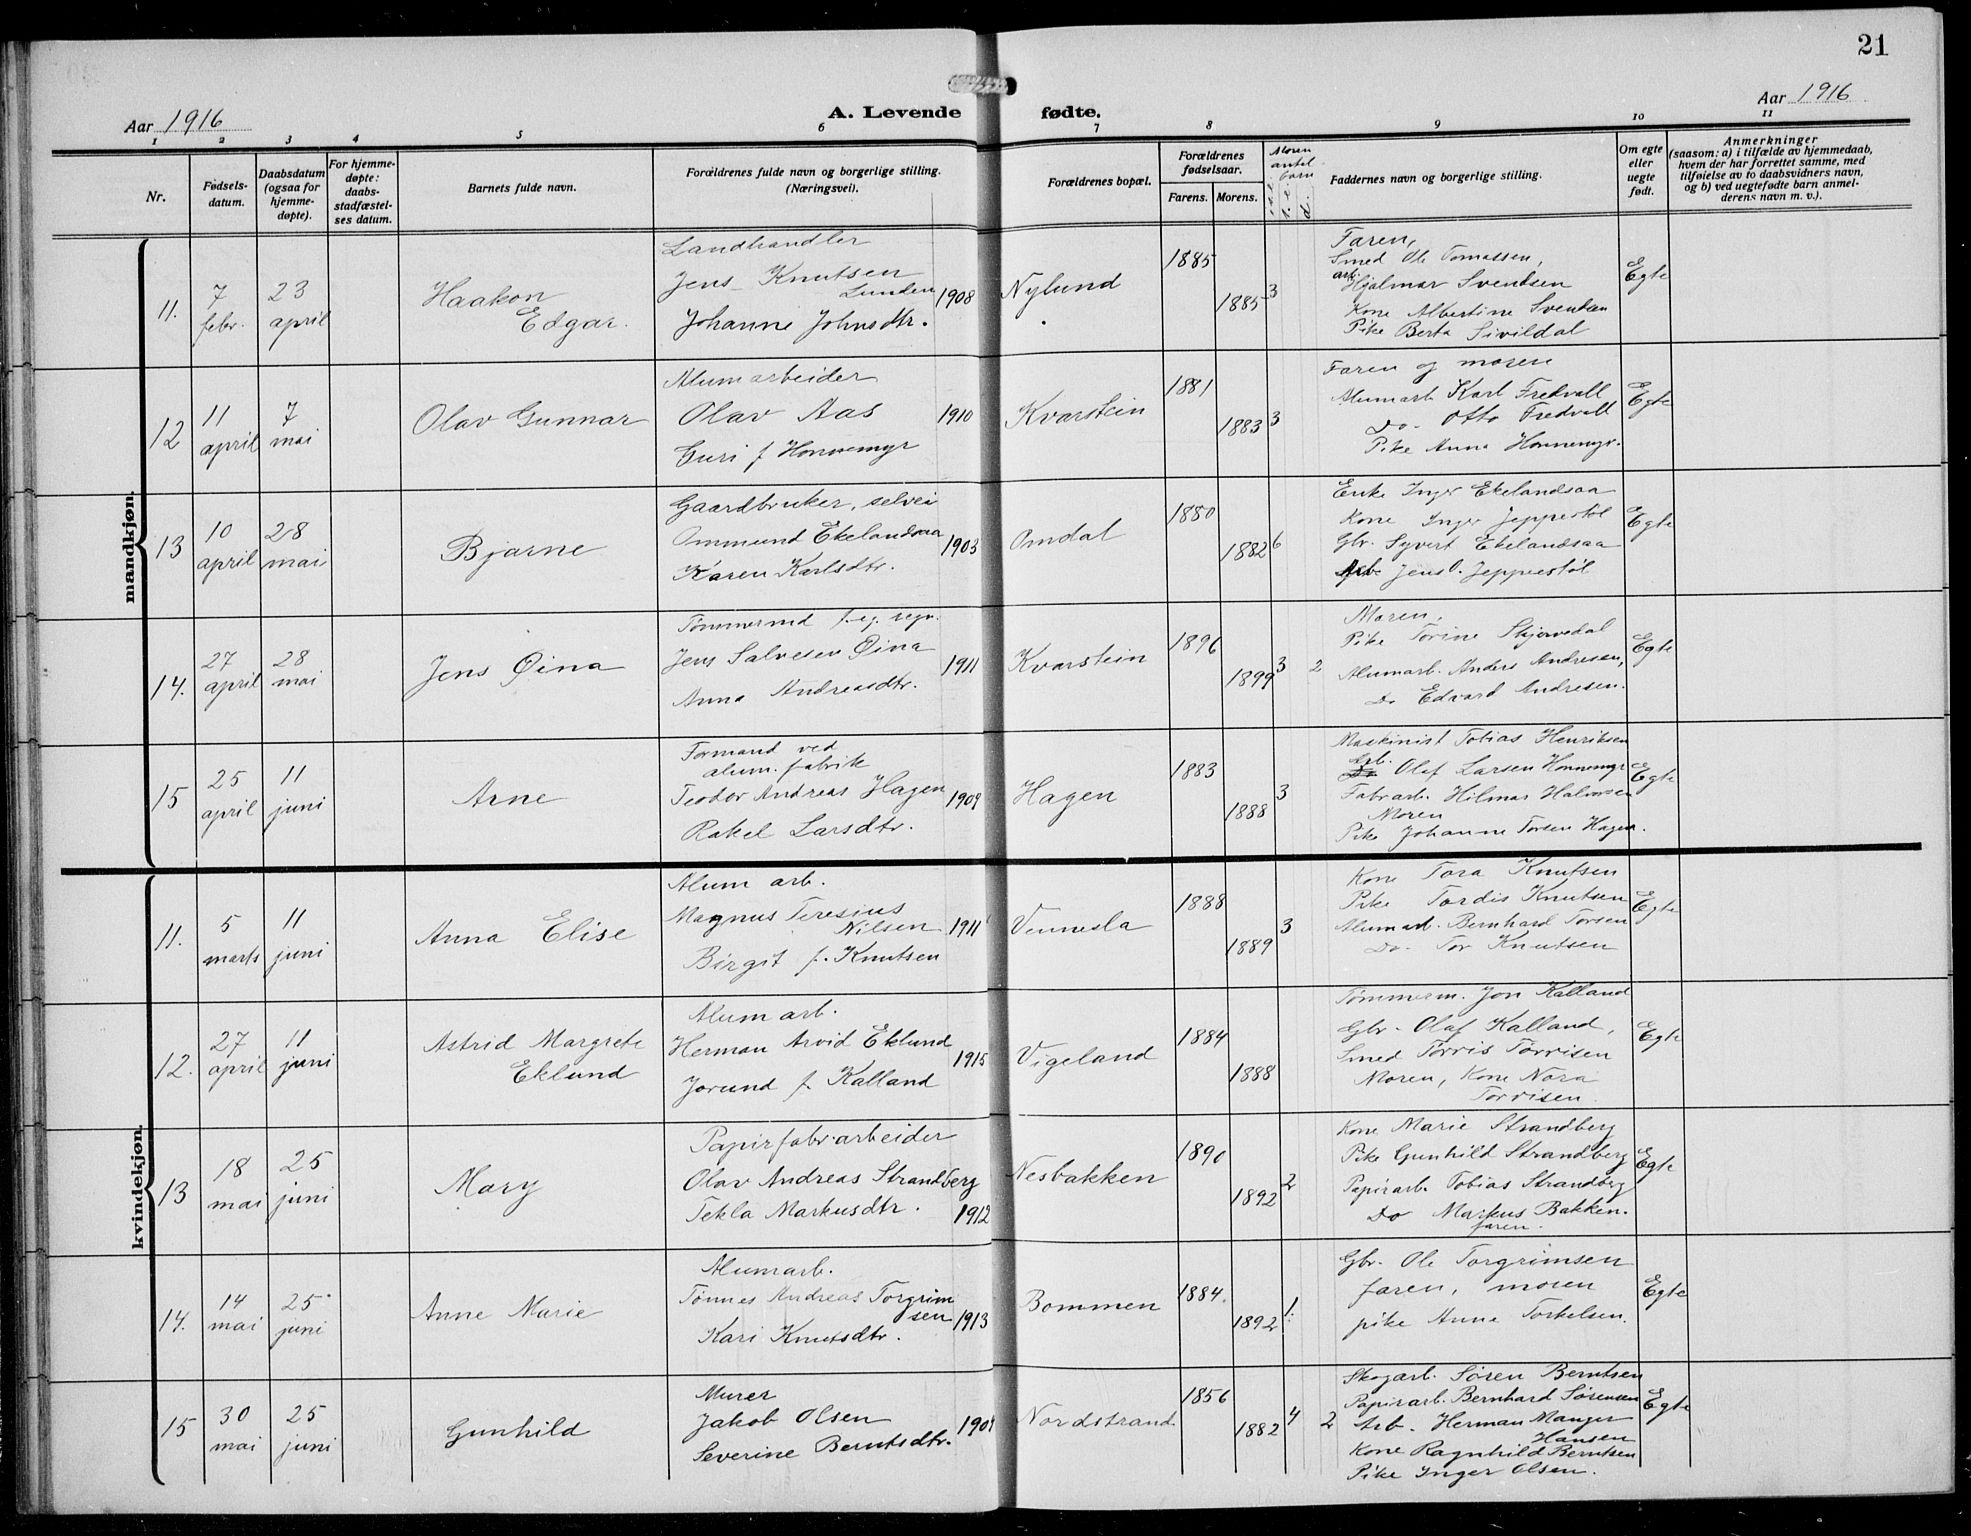 21
Aar 1916
A. Levende fødte.
Aar 1916
1 2 3 4 5 6 7 8 9 10 11
Nr.
Fødsels-
datum.
Daabsdatum
(ogsaa for
hjemme-
døpte).
For hjemme-
døpte:
daabs-
stadfæstel-
ses datum.
Barnets fulde navn.
Forældrenes fulde navn og borgerlige stilling.
(Næringsvei).
Forældrenes bopæl.
Forældrenes
fødselsaar.
Farens. Morens.
Moren
antal
barn
Faddernes navn og borgerlige stilling.
Om egte
eller
uegte
født.
Anmerkninger
(saasom: a) i tilfælde av hjemmedaab,
hvem der har forrettet samme, med
tilføielse av to daabsvidners navn,
og b) ved uegtefødte barn anmel-
derens navn m. v.).
mandkjøn.
11.
7
febr.
23
april
Haakon
Edgar.
Landhandler
Jens Knutsen
Lunden
Johanne Johnsdtr.
1908
Nylund
1885
1885
3
Faren,
Smed Ole Tomassen,
arb. Hjalmar Svendsen
Kone Albertine Svendsen
Pike Berta Sivildal
Egte
12
11
april
7
mai
Olav Gunnar
Alumarbeider
Olav Aas
Guri f. Honnemyr
1910
Kvarstein
1881
1883
3
Faren og moren
Alumarb Karl Fredvall
Do- Otto Fredvall
Pike Anna Honnemyr.
Egte
13
10
april
28
mai
Bjarne
Gaardbruker, selvei
Ommund Ekelandsaa
Karen Karlsdtr.
1903
Omdal
1880
1882
6
Enke Inger Ekelandsaa
Kone Inger Jeppestøl
Gbr. Syvert Ekelandsaa
Arb. Jens O. Jeppestøl
Egte
14.
27
april
28
mai
Jens Øina
Tømmermd f. eg. regn.
Jens Salvesen Øina
Anna Andreasdtr.
1911
Kvarstein
1896
1899
3 2
Moren,
Pike Torine Skjervedal
Alumarb. Anders Andresen,
Do Edvard Andresen.
Egte
15
25
april
11
juni
Arne
Formand ved
alum. fabrik
Teodor Andreas Hagen
Rakel Larsdtr.
1909
Hagen
1883
1888
3
Maskinist Tobias Henriksen
Arb. Olaf Larsen Honnemyr
Fabrarb. Hilmar Halvorsen
Moren
Pike Johanne Torsen Hagen.
Egte
kvindekjøn.
11.
5
marts
11
juni
Anna Elise
Alum arb.
Magnus Teresius
Nilsen
Birgit f. Knutsen
1911
Vennesla
1888
1889
3
Kone Tora Knutsen
Pike Tordis Knutsen
Alumarb. Bernhard Torsen
Do- Tor Knutsen
Egte
12.
27
april
11
juni
Astrid Margrete
Eklund
Alumarb.
Herman Arvid Eklund
Jorund f. Kalland
1915
Vigeland
1884
1888
Tømmerm. Jon Kalland
Gbr- Olaf Kalland,
Smed Torris Torrisen
Moren, Kone Nora
Torrisen.
Egte
13
18
mai
25
juni
Mary
Papirfabrarbeider
Olav Andreas Strandberg
Tekla Markusdtr.
1912
Nesbakken
1890
1892
2
Kone Marie Strandberg
Pike Gunhild Strandberg
Papirarb. Tobias Strandberg
Do Markus Bakken.
faren.
Egte
14.
14
mai
25
juni
Anne Marie
Alumarb.
Tønnes Andreas Torgrim
sen
Kari Knutsdtr.
1913
Bommen
1884.
1892
1.
Gbr- Ole Torgrimsen
faren, moren
pike Anna Torkelsen.
Egte
15
30
mai
25
juni
Gunhild
Murer
Jakob Olsen
Severine Berntsdtr.
Nordstrand
1856
1882
4 2
Skogarb. Søren Berntsen
Papirarb. Bernhard Sørensen
Arb- Herman Manger
Hansen
Kone Ragnhild Berntsen
Pike Inger Olsen.
Egte